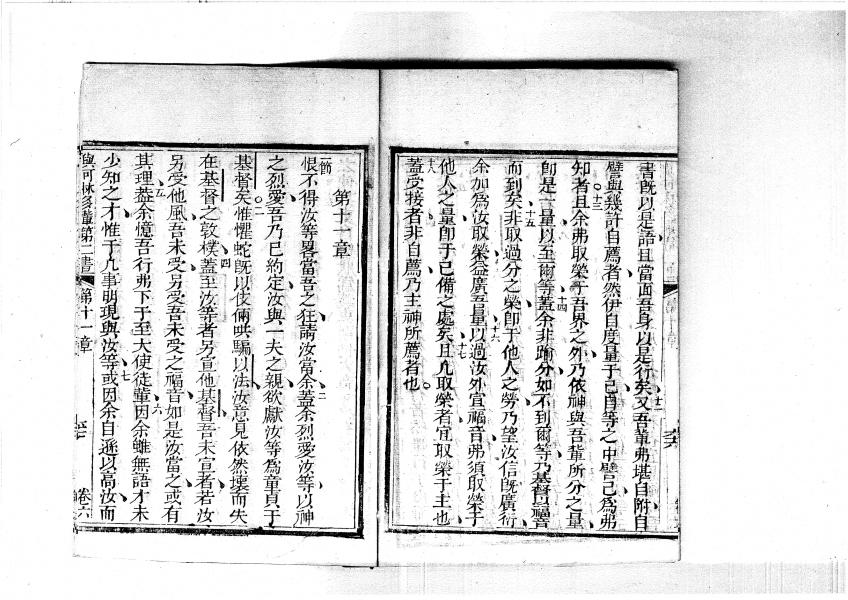 書既以是語且當面吾身以是行矣又吾輩弗堪自附自
十二
譬與幾許自薦者然伊自度量于己自等之中譬己為弗
知者且余弗取榮于吾界之外乃依神與吾輩所分之量
十三
即是一量以至爾等蓋余非踰分如不到爾等乃基督以福音
十四
而到矣非取過分之榮即于他人之勞乃望汝信既廣行
十五
余加為汝取榮益廣吾量以過汝外宣福音弗須取榮于
十六
他人之量即于已備之處矣且凡取榮者宜取榮于主也
十七
蓋受接者非自薦乃主神所薦者也
十八
第十一章
一節
恨不得汝等畧當吾之狂請汝當余蓋余烈愛汝等以神
二
之烈愛吾乃已約定汝與一夫之親欲獻汝等為童貞于
基督矣惟懼蛇既以伎倆哄騙以法汝意見依然壞而失
三
在基督之敦樸蓋至汝等者另宣他基督吾未宣者若汝
四
另受他風吾未受另受吾未受之福音如是汝當之或有
其理蓋余憶吾行弗下于至大使徒輩因余雖無語才未
五
六
少知之才惟于凡事明現與汝等或因余自遜以高汝而
七
與可林多輩第二書 第十一章 卷六